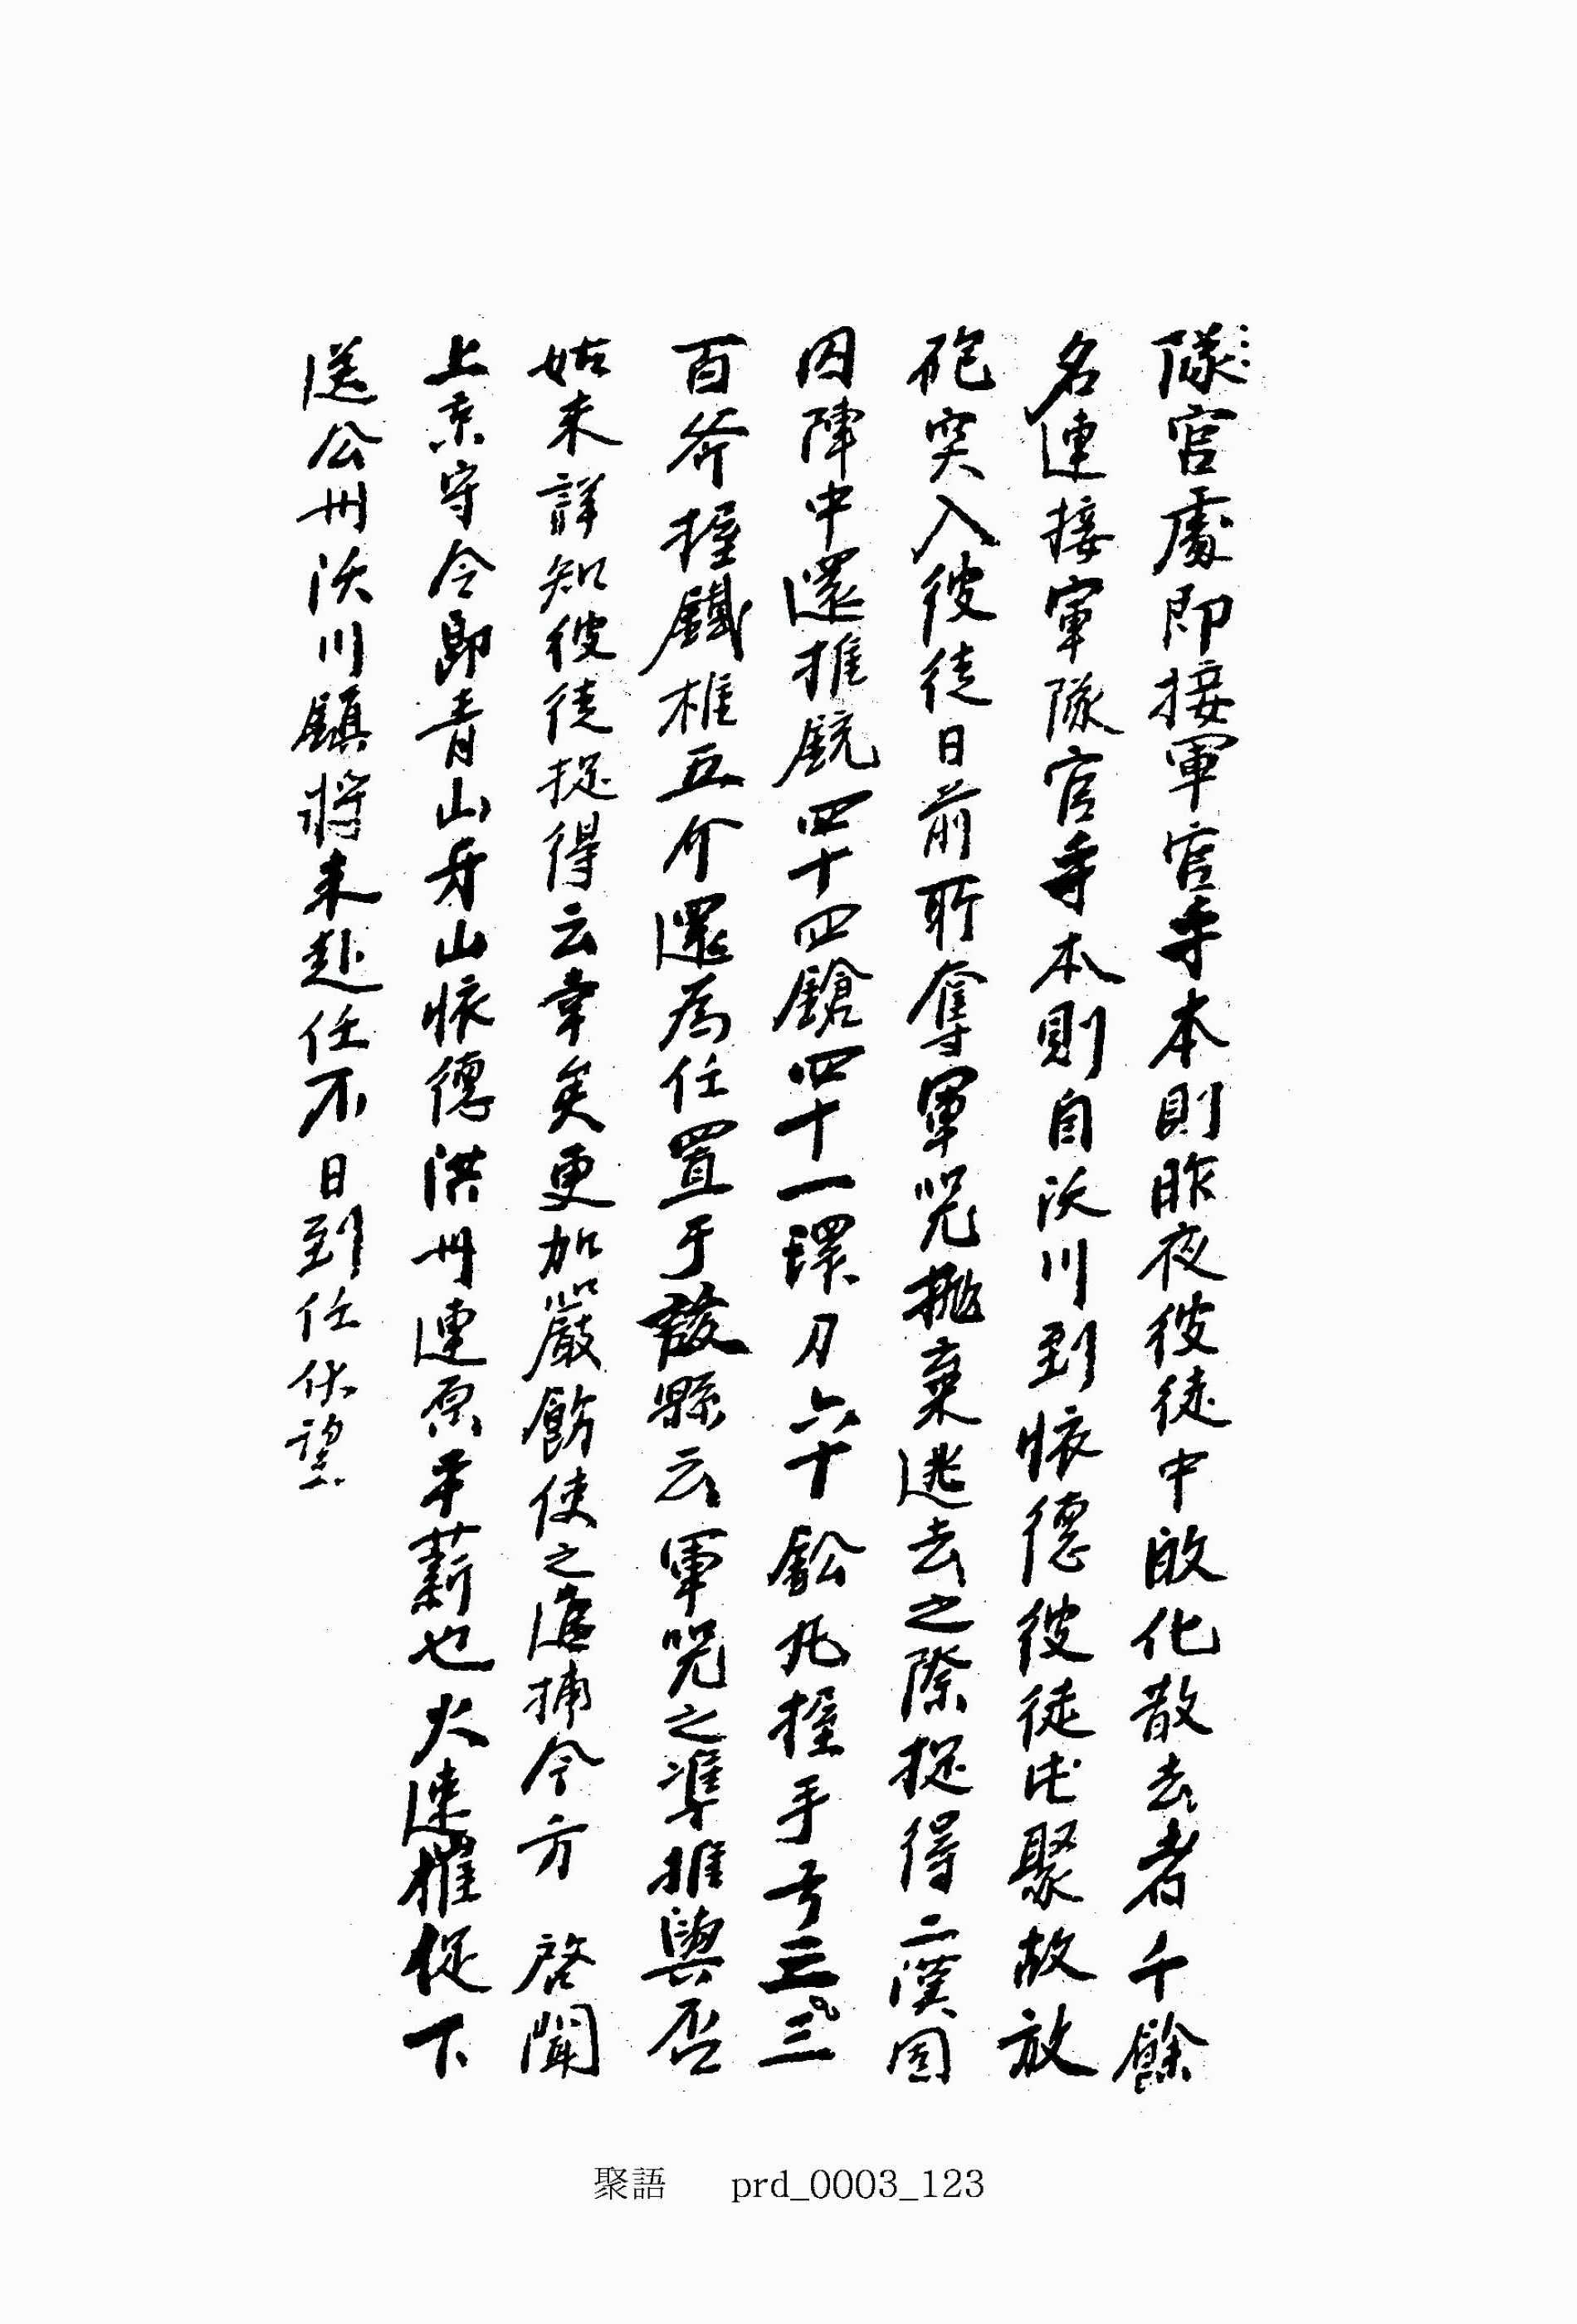 隊官處即接軍官手本則昨夜彼徒中改化散去者千餘
名連接軍隊官手本則自沃川到懷德彼徒屯聚故放
砲突入彼徒日前所奪軍咒拋棄逃去之際捉得二漢因
囚陣中還推銃四十四鎗四十一環刀六十鈆丸握手亐三三
百斧握鐵椎五介還爲任置于該縣云軍咒之準推與否
姑未詳知彼徒捉得云幸矣更加嚴飭使之追捕今方 啓聞
上京守令即青山牙山懷德洪州連原平薪也火速催促下
送公州沃川鎭將未赴任不日到任伏望
聚語 prd_0003_123